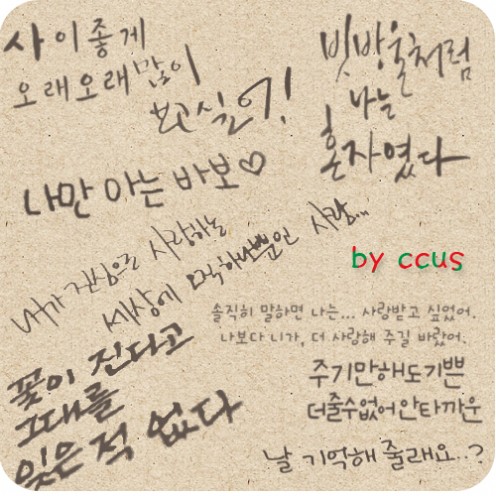 사이좋게
오래오래 많이
보고싶어!
빗방울처럼
나는
혼자였다
나만 아는 바보♡
내가 진심으로 사랑하는
세상에 오직 하나뿐인 사람...
by ccus
솔직히 말하면 나는... 사랑받고 싶었어.
나보다 니가, 더 사랑해 주길 바랐어.
꽃이 진다고
그대를
잊은 적 없다
주기만해도기쁜
더줄수없어안타까운
날 기억해 줄래요..?